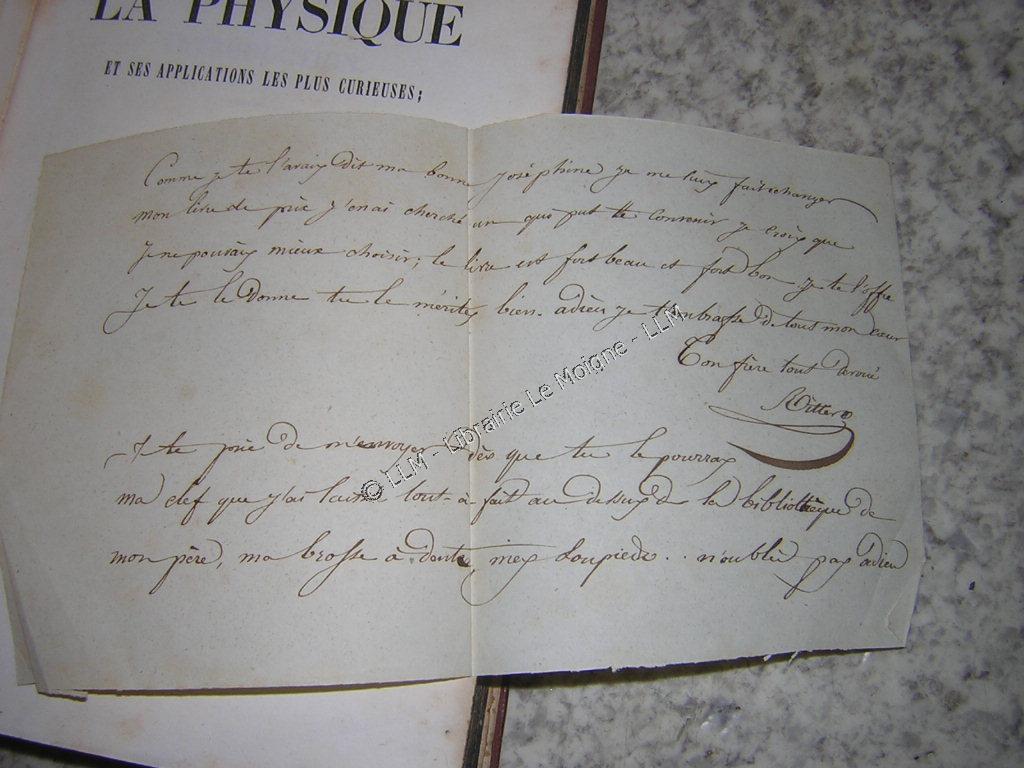 LA PHYSIQUE
ET SES APPLICATIONS LES PLUS CURIEUSES;
Comme je te l'avais dit ma bonne joséphine je me suis fait echanger
mon livre de prix j'en ai cherché un qui put te convenir je crois que
je ne pouvais mieux choisir; le livre est fort beau et fort bon. je te l'offre
je te le donne tu le mérites bien. adieu je t'embrasse de tout mon cœur
Ton frère tout devoué
Je te prie de m'envoyer dès que tu le pourras
ma clef que j'ai laissé tout-à fait au dessus de la bibliothèque de
mon père, ma brosse à dents, mes .. n'oublie pas adieu
© LLM - Librairie Le Moigne - LLM